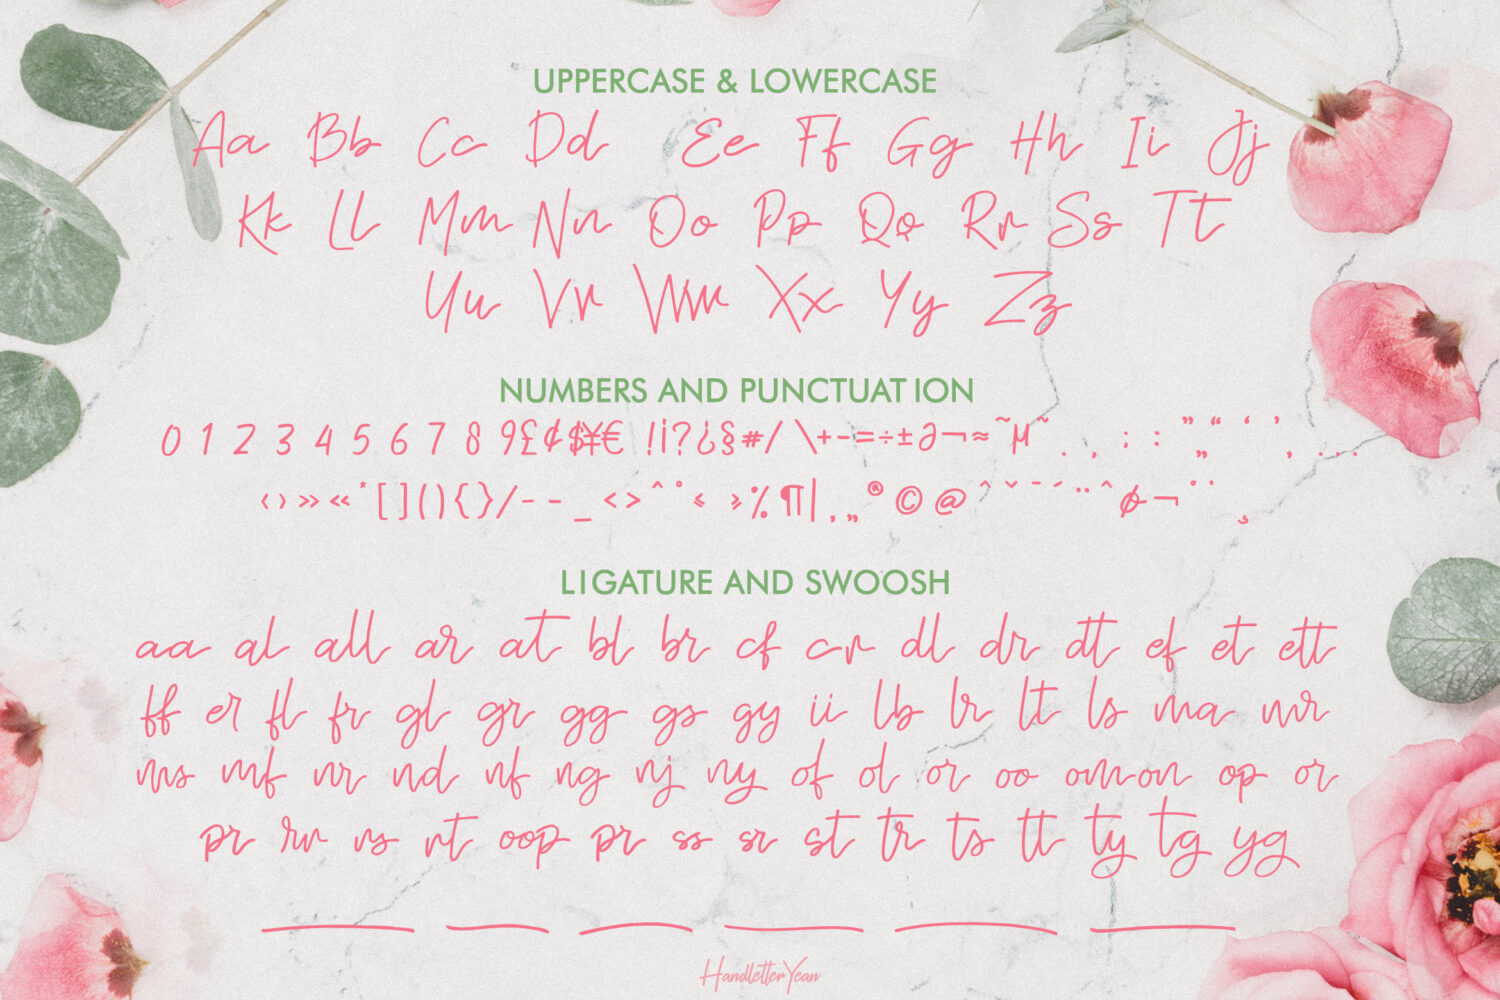 UPPERCASE & LOWERCASE
Aa Bb Cc Dd Ee Ff Gg Hh Ii Jj
Kk Ll Mm Nn Oo Pp Qq Rr Ss Tt
Uu Vv Ww Xx Yy Zz
NUMBERS AND PUNCTUATION
0 1 2 3 4 5 6 7 8 9 £ ¢ $ ¥ € ! ¡ ? ¿ § # / \ + - = ÷ ± ∂ ¬ ≈ ~ µ ~ . , ; : ” „ “ ‘ ’ , ...
‹ › » « * [ ] ( ) { } / - - _ < > ^ ° ≤ ≥ % ¶ | , „ ® © @ ^ ˇ ¯ ´ ¨ ^ ø ¬ ° ˙ ¸
LIGATURE AND SWOOSH
aa al all ar at bl br cf cr dl dr dt ef et ett
ff er fl fr gl gr gg gs gy ii lb lr lt ls ma mr
ms mf nr nd nf ng nj ny of ol or oo om on op or
pr rv rs rt oop pr ss sr st tr ts tt ty tg yg
HandletterYean